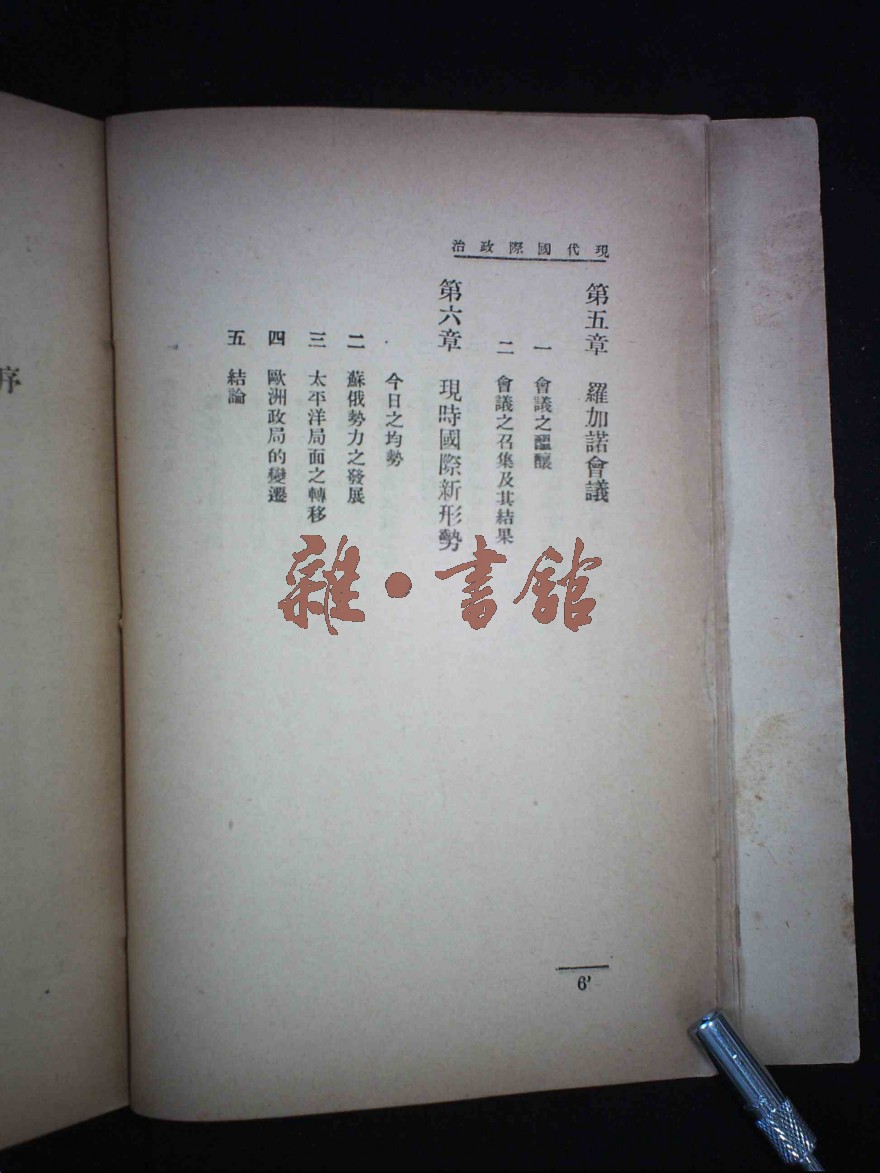 現代國際政治
第五章 羅加諾會議
一 會議之醞釀
二 會議之召集及其結果
第六章 現時國際新形勢
今日之均勢
二 蘇俄勢力之發展
三 太平洋局面之轉移
四 歐洲政局的變遷
五 結論
6
序
雜·書館